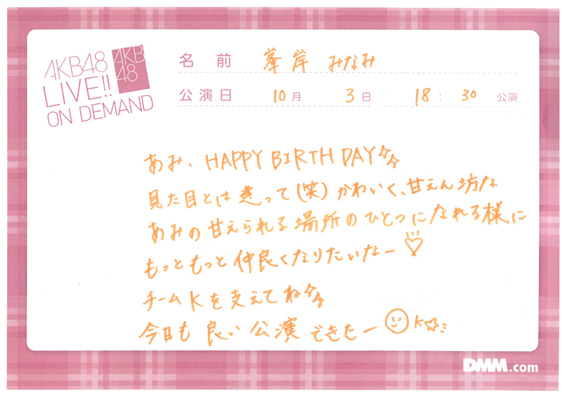 AKB48
LIVE!!
ON DEMAND
AKB
48
名 前 峯岸 みなみ
公演日 10月 3日 18:30 公演
あみ、HAPPY BIRTHDAY☆☆
見た目とは違って(笑)かわいく、甘えん坊な
あみの甘えられる場所のひとつになれる様に
もっともっと仲良くなりたいなー♡
チームKを支えてね☆☆
今日も良い公演できたー☺K☆ミ
DMM.com